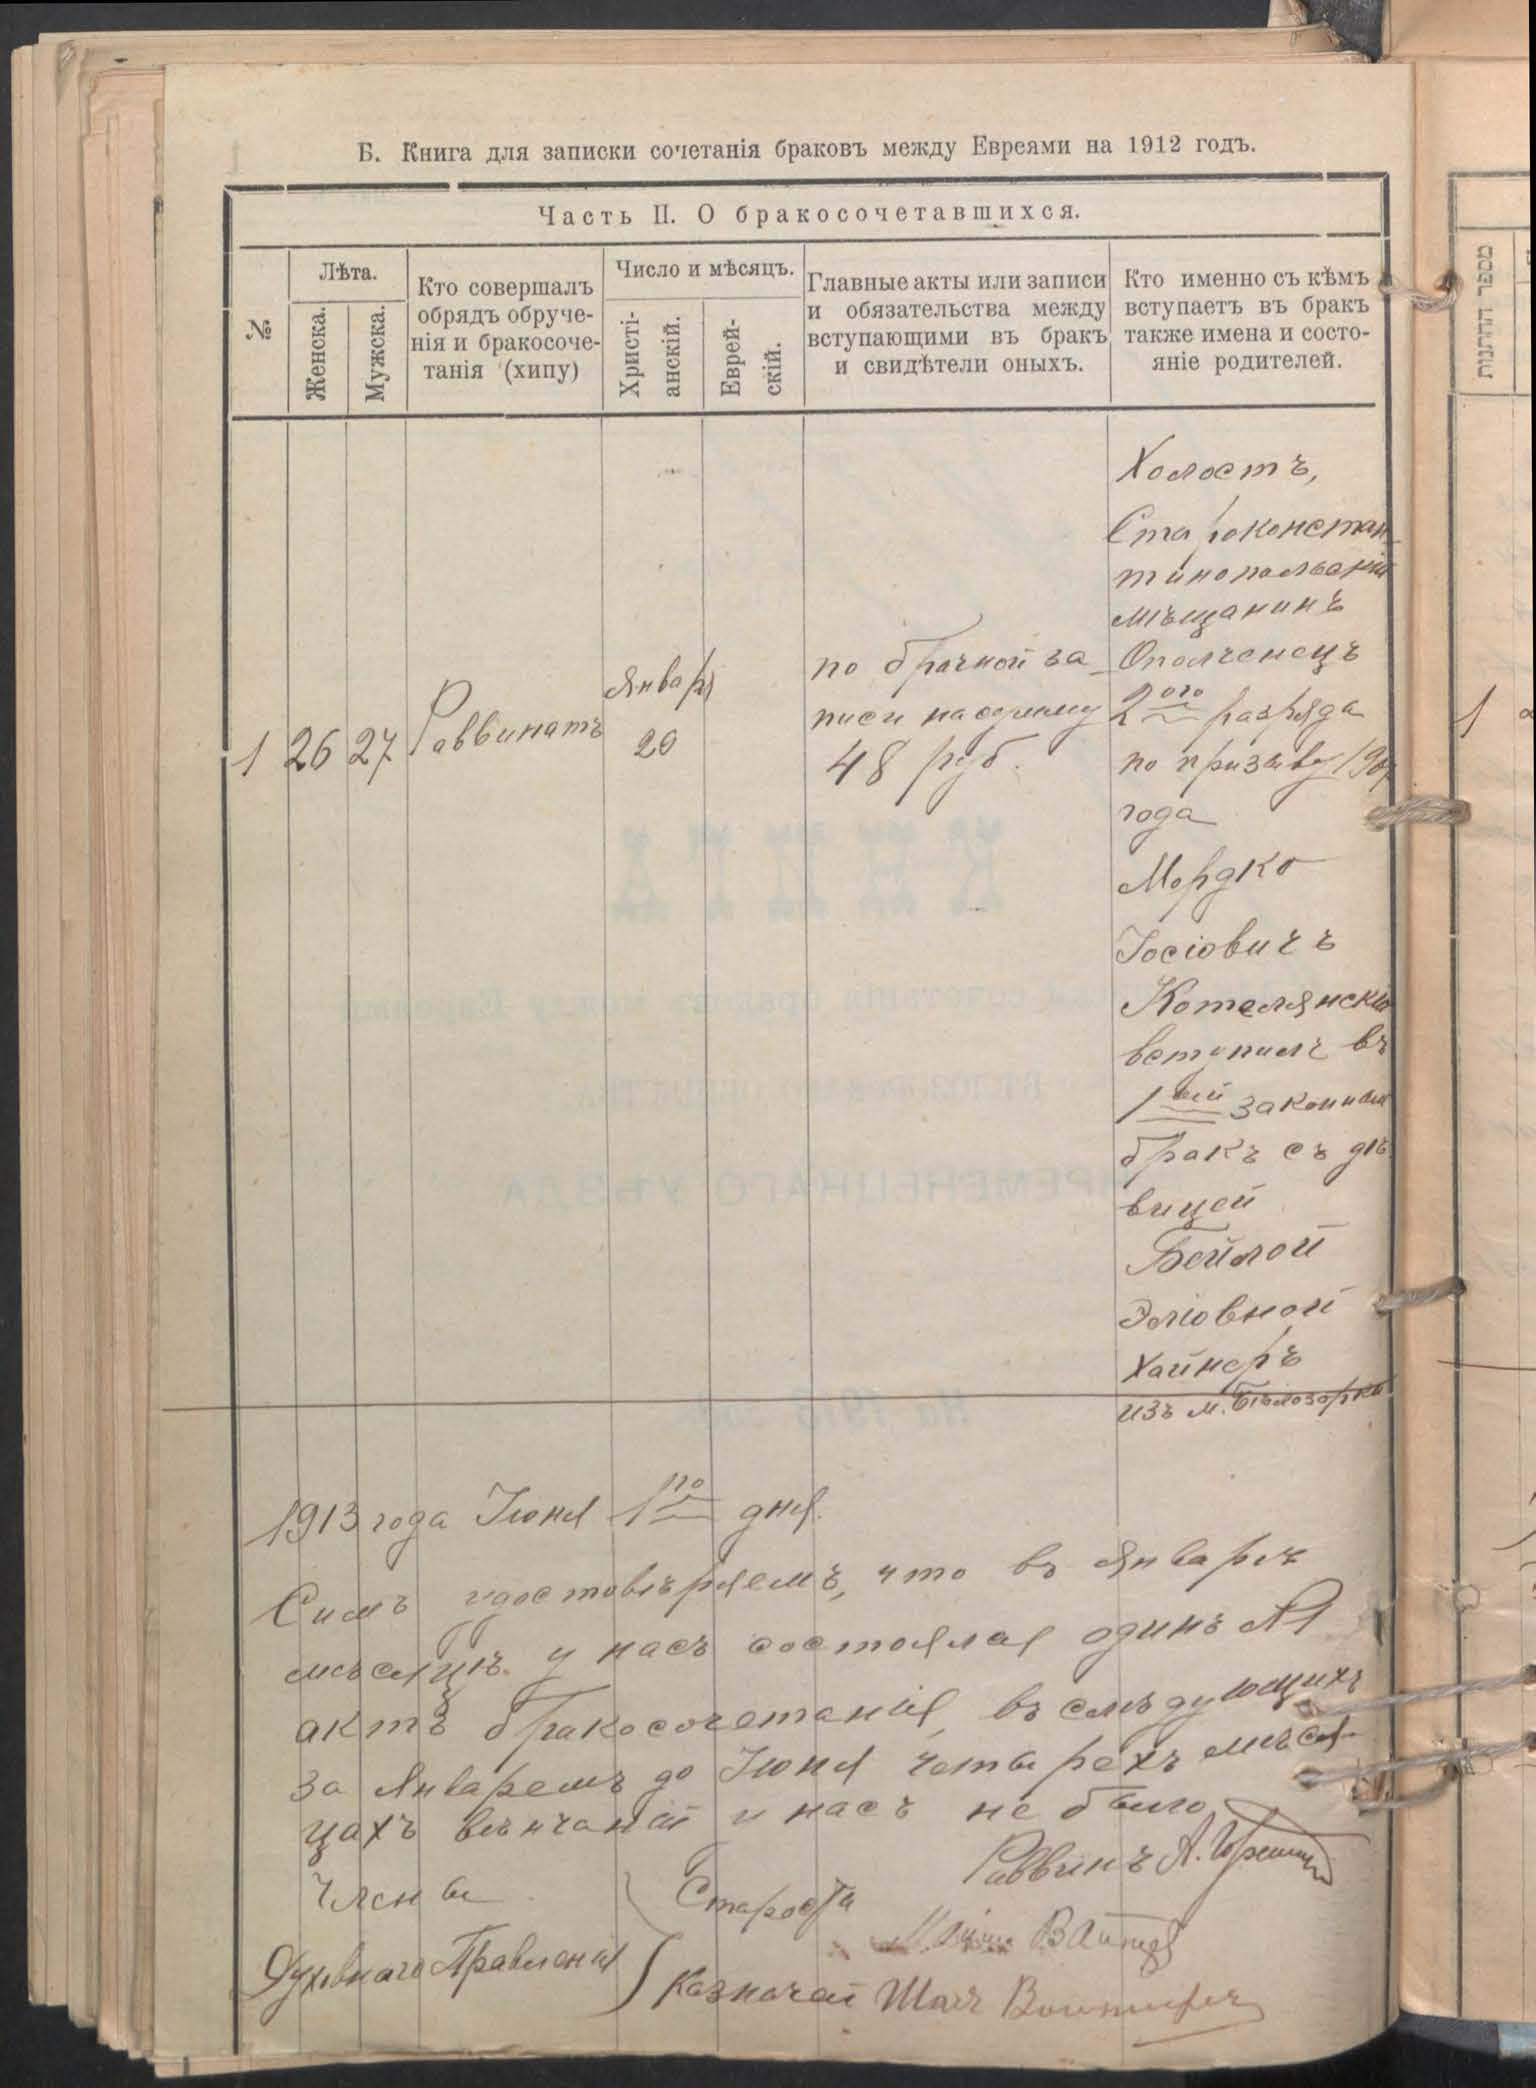 Б. Книга для записки сочетанія браковъ между Евреями на 1912 годъ.
Часть II. О бракосочетавшихся.
№
Лѣта.
Женска.
Мужска.
Кто совершалъ
обрядъ обруче-
нія и бракосоче-
танія (хипу)
Число и мѣсяцъ.
Христі-
анскій.
Еврей-
скій.
Главные акты или записи
и обязательства между
вступающими въ бракъ
и свидѣтели оныхъ.
Кто именно съ кѣмъ
вступаетъ въ бракъ
также имена и состо-
яніе родителей.
1
26
27
Раввинатъ
Январь
20
по брачной за-
писи на сумму
48 руб.
Холостъ,
Староконстан-
тинопольскій
мѣщанинъ
Ополченецъ
2ого разряда
по призыву
года
Мордко
Іосіовичъ
Котелянскій
вступилъ въ
1ый законный
бракъ съ дѣ-
вицей
Бейлой
Эліовной
Хайнеръ
изъ м. Бѣлозорки
1913 года Іюня 1го дня.
Симъ удостовѣряемъ, что въ Январѣ
мѣсяцѣ у насъ состоялся одинъ №1
актъ бракосочетанія, въ слѣдующихъ
за Январемъ до Іюня четырехъ мѣся-
цахъ вѣнчаній у насъ не было
Раввинъ А.
Члены
Духовнаго Правленія
Староста
Казначей
מספר החתנות
1